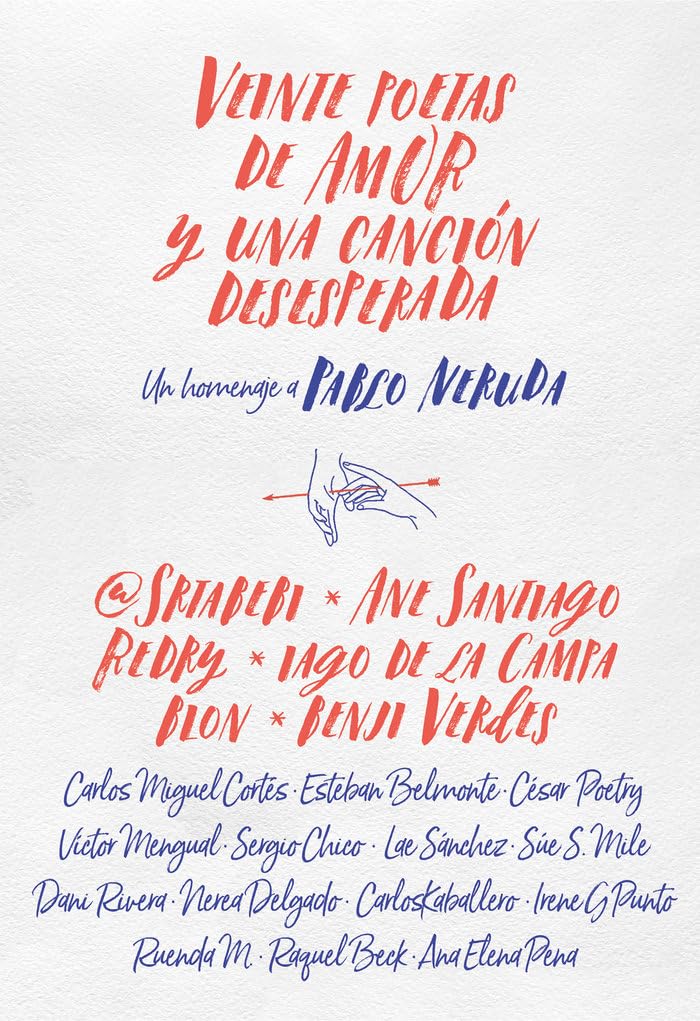 VEINTE POETAS
DE AMOR
y UNA CANCIÓN
DESESPERADA
Un homenaje a PABLO NERUDA
@SRTABEBI * ANE SANTIAGO
REDRY * IAGO DE LA CAMPA
BLON * BENJI VERdES
Carlos Miguel Cortés · Esteban Belmonte · César Poetry
Víctor Mengual · Sergio Chico · Lae Sánchez · Súe S. Mile
Dani Rivera · Nerea Delgado · CarlosKaballero · Irene G Punto
Ruenda M. · Raquel Beck · Ana Elena Pena